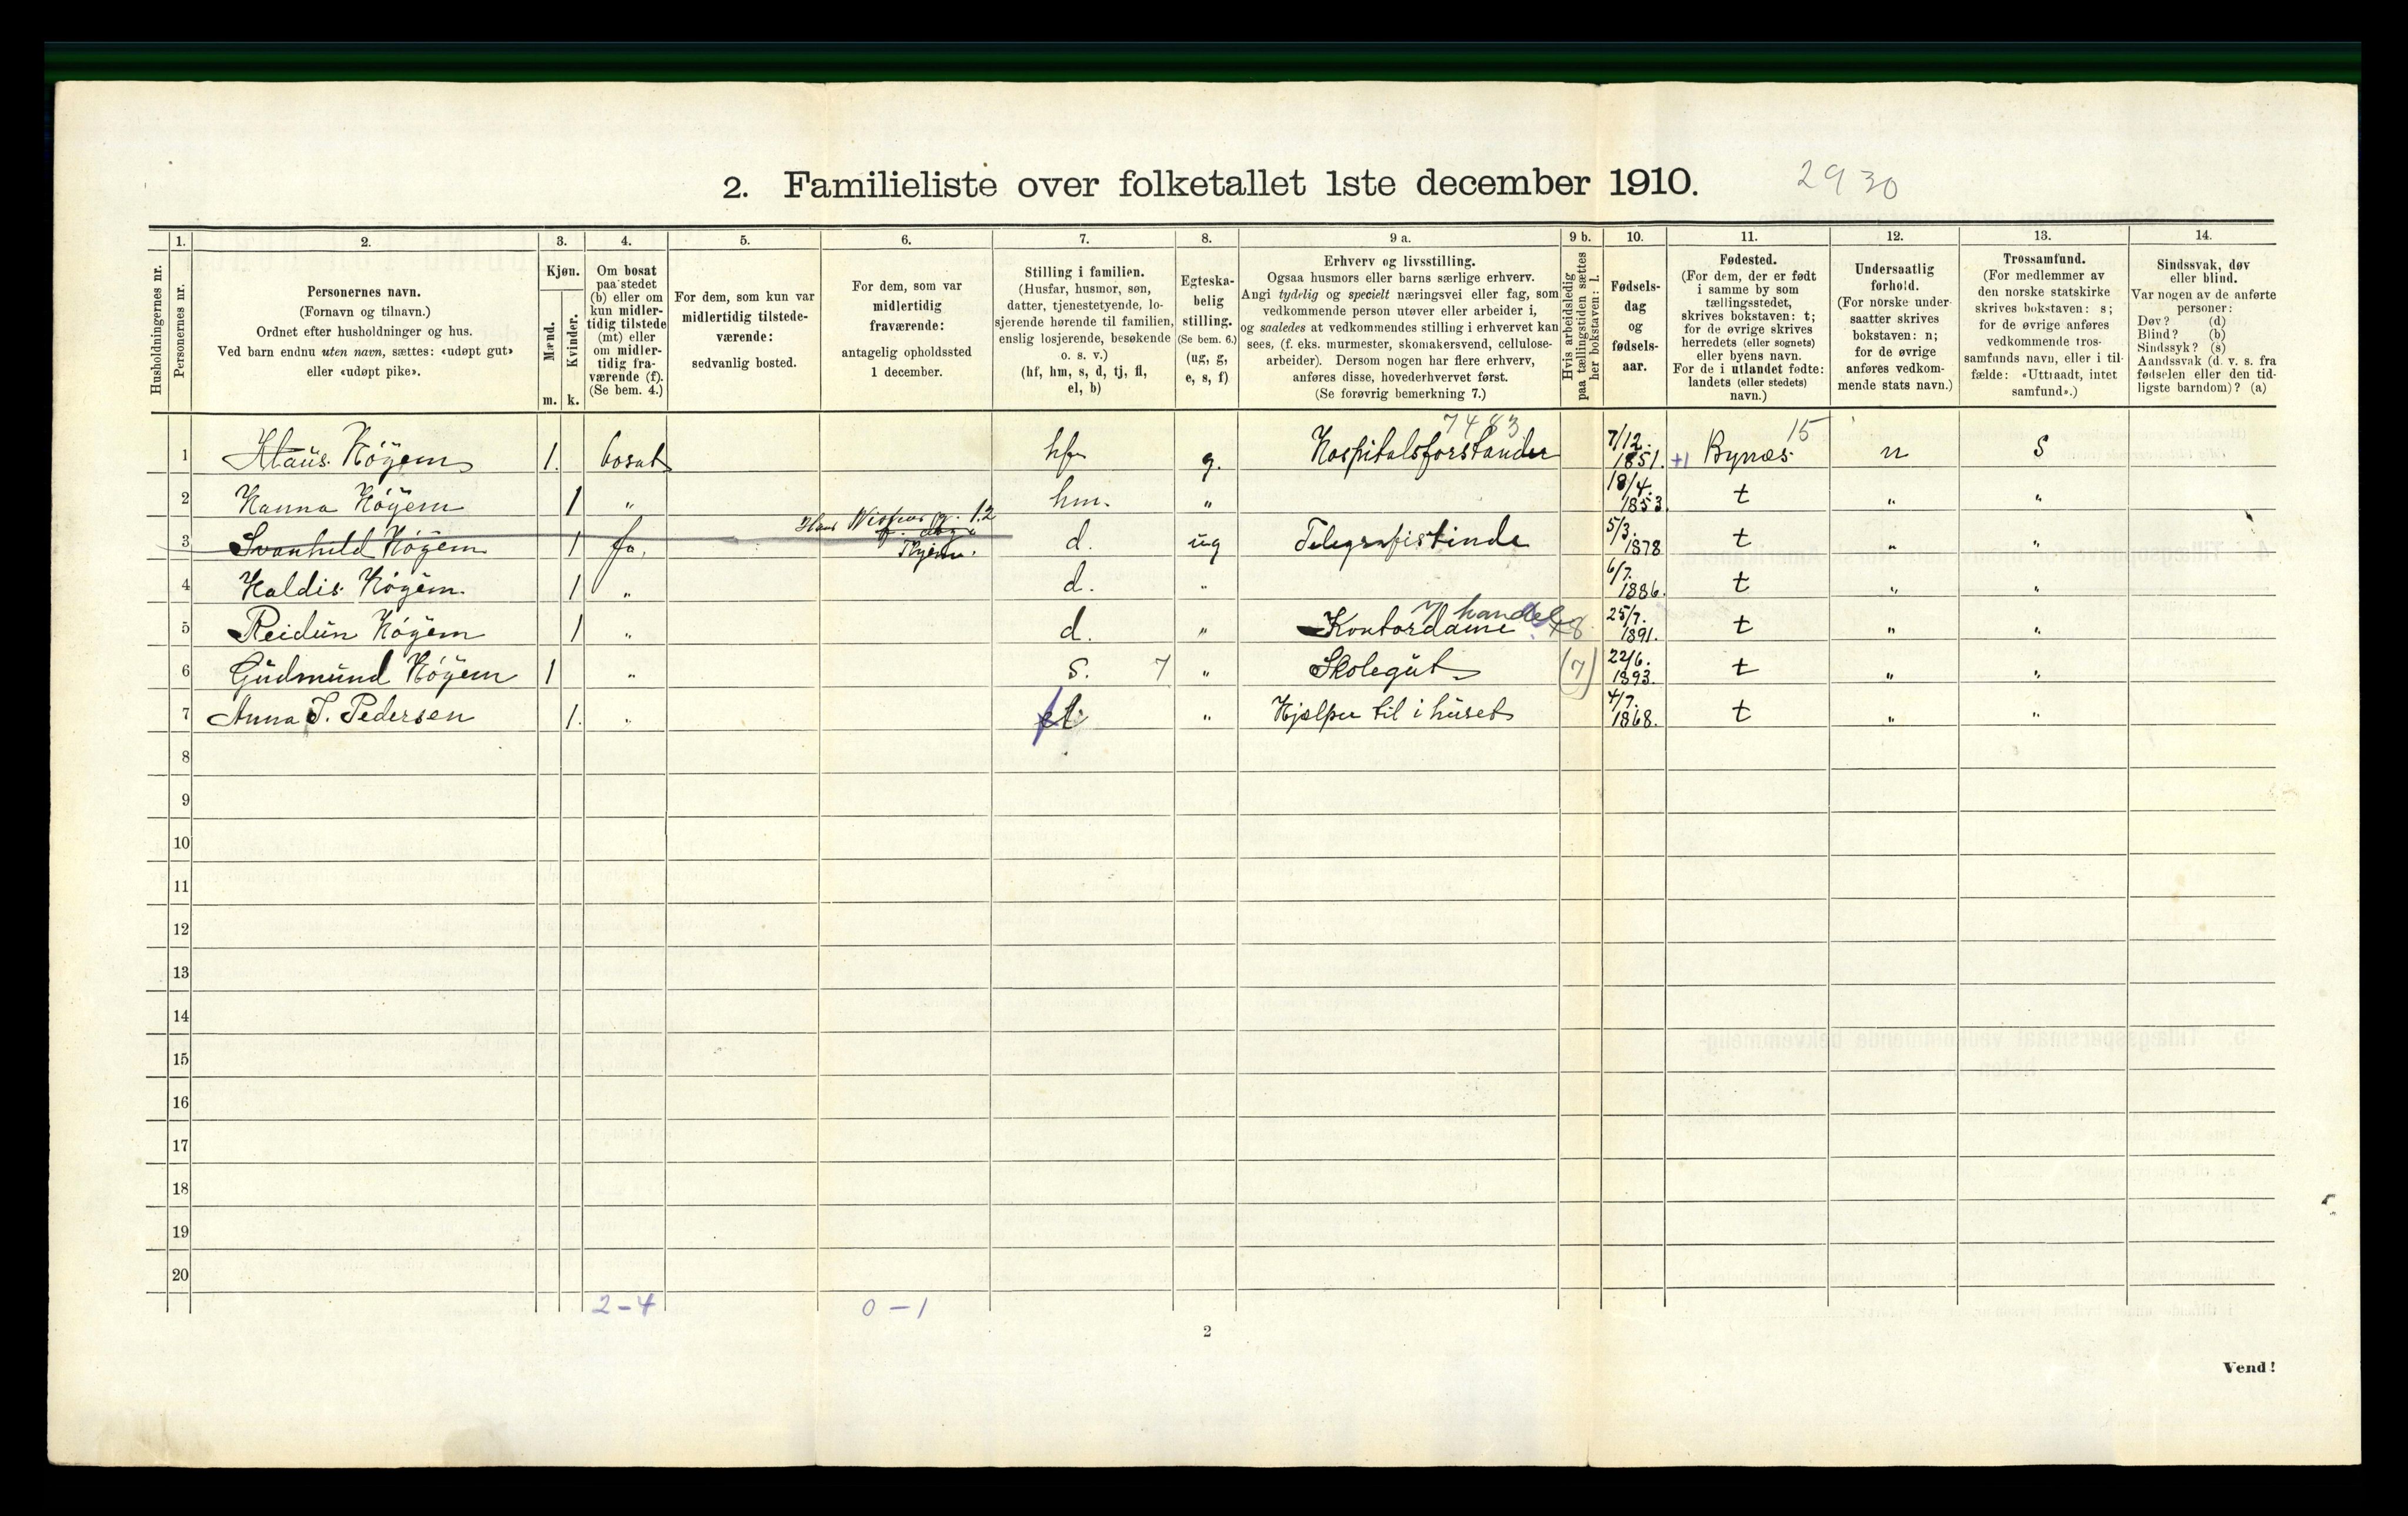 2. Familieliste over folketallet 1ste december 1910.
2930
Husholdningernes nr.
1.
Personernes nr.
2.
Personernes navn.
(Fornavn og tilnavn.)
Ordnet efter husholdninger og hus.
Ved barn endnu uten navn, sættes: «udøpt gut»
eller «udøpt pike».
3.
Kjøn.
Mænd.
Kvinder.
m. k.
4.
Om bosat
paa stedet
(b) eller om
kun midler-
tidig tilstede
(mt) eller
om midler-
tidig fra-
værende (f).
(Se bem. 4.)
5.
For dem, som kun var
midlertidig tilstede-
værende:
sedvanlig bosted.
6.
For dem, som var
midlertidig
fraværende:
antagelig opholdssted
1 december.
7.
Stilling i familien.
(Husfar, husmor, søn,
datter, tjenestetyende, lo-
sjerende hørende til familien,
enslig losjerende, besøkende
o. s. v.)
(hf, hm, s, d, tj, fl,
el, b)
8.
Egteska-
belig
stilling.
(Se bem. 6.)
(ug, g,
e, s, f)
9 a.
Erhverv og livsstilling.
Ogsaa husmors eller barns særlige erhverv.
Angi tydelig og specielt næringsvei eller fag, som
vedkommende person utøver eller arbeider i,
og saaledes at vedkommendes stilling i erhvervet kan
sees, (f. eks. murmester, skomakersvend, cellulose-
arbeider). Dersom nogen har flere erhverv,
anføres disse, hovederhvervet først.
(Se forøvrig bemerkning 7.)
9 b.
Hvis arbeidsledig
paa tællingstiden sættes
her bokstaven: l.
10.
Fødsels-
dag
og
fødsels-
aar.
11.
Fødested.
(For dem, der er født
i samme by som
tællingsstedet,
skrives bokstaven: t;
for de øvrige skrives
herredets (eller sognets)
eller byens navn.
For de i utlandet fødte:
landets (eller stedets)
navn.)
12.
Undersaatlig
forhold.
(For norske under-
saatter skrives
bokstaven: n;
for de øvrige
anføres vedkom-
mende stats navn.)
13.
Trossamfund.
(For medlemmer av
den norske statskirke
skrives bokstaven: s;
for de øvrige anføres
vedkommende tros-
samfunds navn, eller i til-
fælde: «Uttraadt, intet
samfund».)
14.
Sindssvak, døv
eller blind.
Var nogen av de anførte
personer:
Døv? (d)
Blind? (b)
Sindssyk? (s)
Aandssvak (d. v. s. fra
fødselen eller den tid-
ligste barndom)? (a)
7483 15
1 Klaus Høyem 1. bosat hf g. Hospitalsforstander 7/12. 1851. +1 Bynæs n S
2 Hanna Høyem 1 " hm. " 18/4. 1853. t " "
3 Svanhild Høyem 1 fr. d. ug Telegrafistinde 5/3. 1878 t " "
4 Haldis Høyem. 1 " d. " 6/7. 1886. t " "
5 Reidun Høyem 1 " d. " Kontordame handel 25/7. 1891. t " "
6 Gudmund Høyem 1 " s. 7 " Skolegut (7) 22/6. 1893. t " "
7 Anna J. Pedersen 1. " " Hjælper til i huset 4/7. 1868. t " "
8
9
10
11
12
13
14
15
16
17
18
19
20
2-4 0-1
2
Vend!